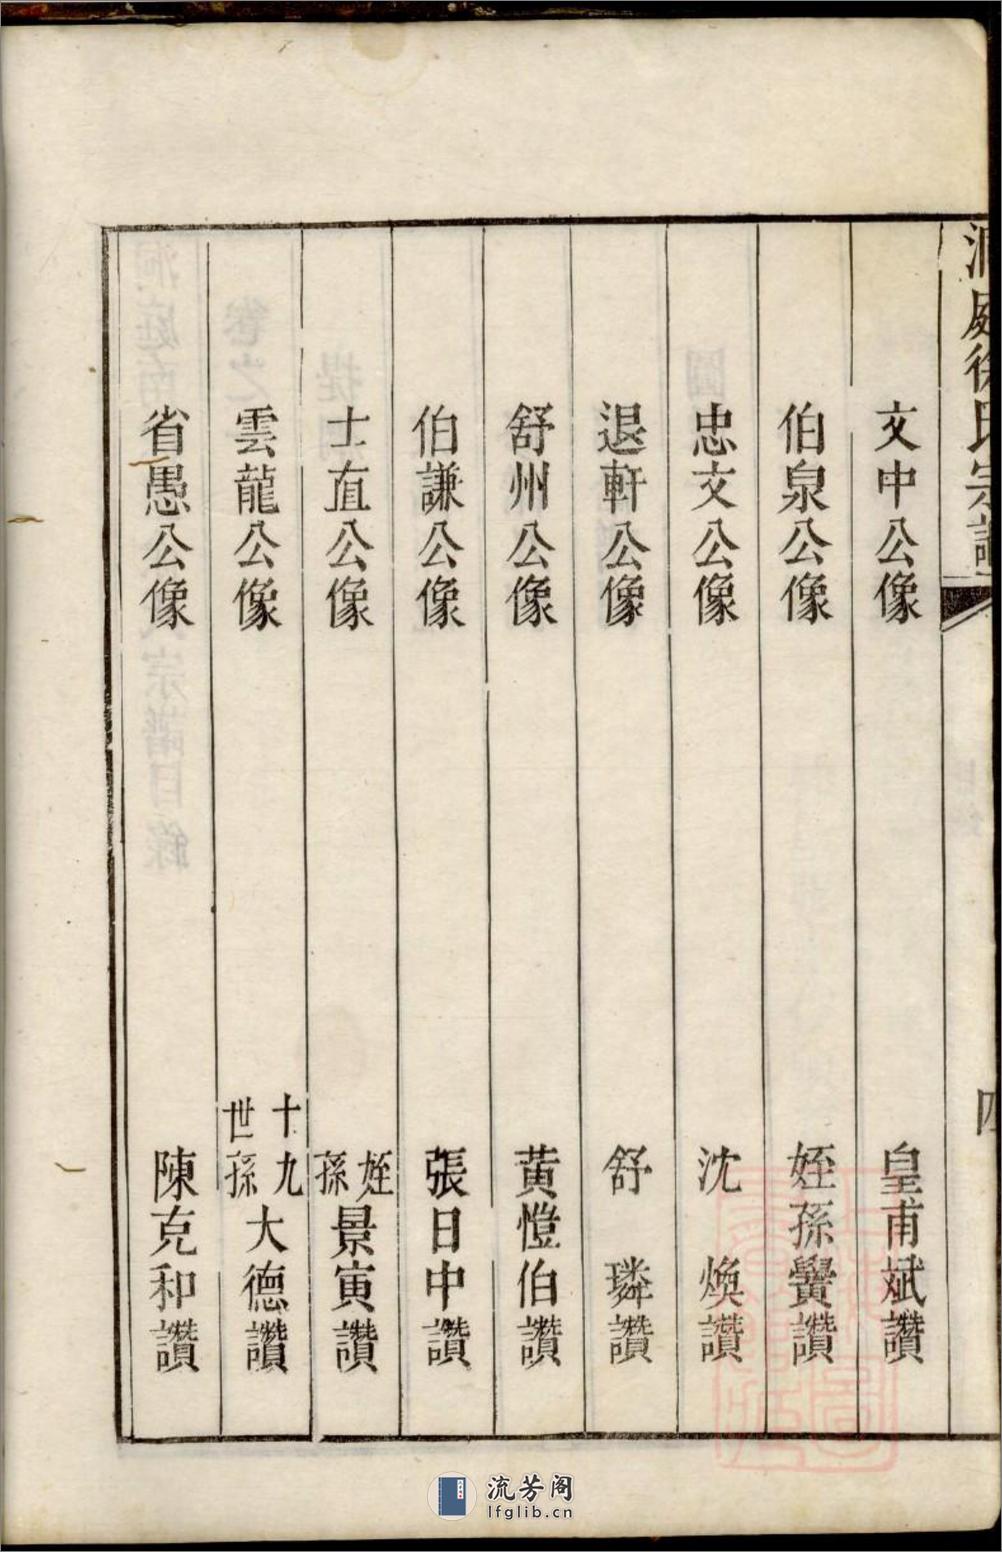 洞庭徐氏宗譜
四
文中公像 皇甫斌讚
伯泉公像 姪孫黌讚
忠文公像 沈煥讚
退軒公像 舒璘讚
舒州公像 黄愷伯讚
伯謙公像 張日中讚
士直公像 姪孫景寅讚
雲龍公像 十九世孫大德讚
省愚公像 陳克和讚
流芳阁
lfglib.cn